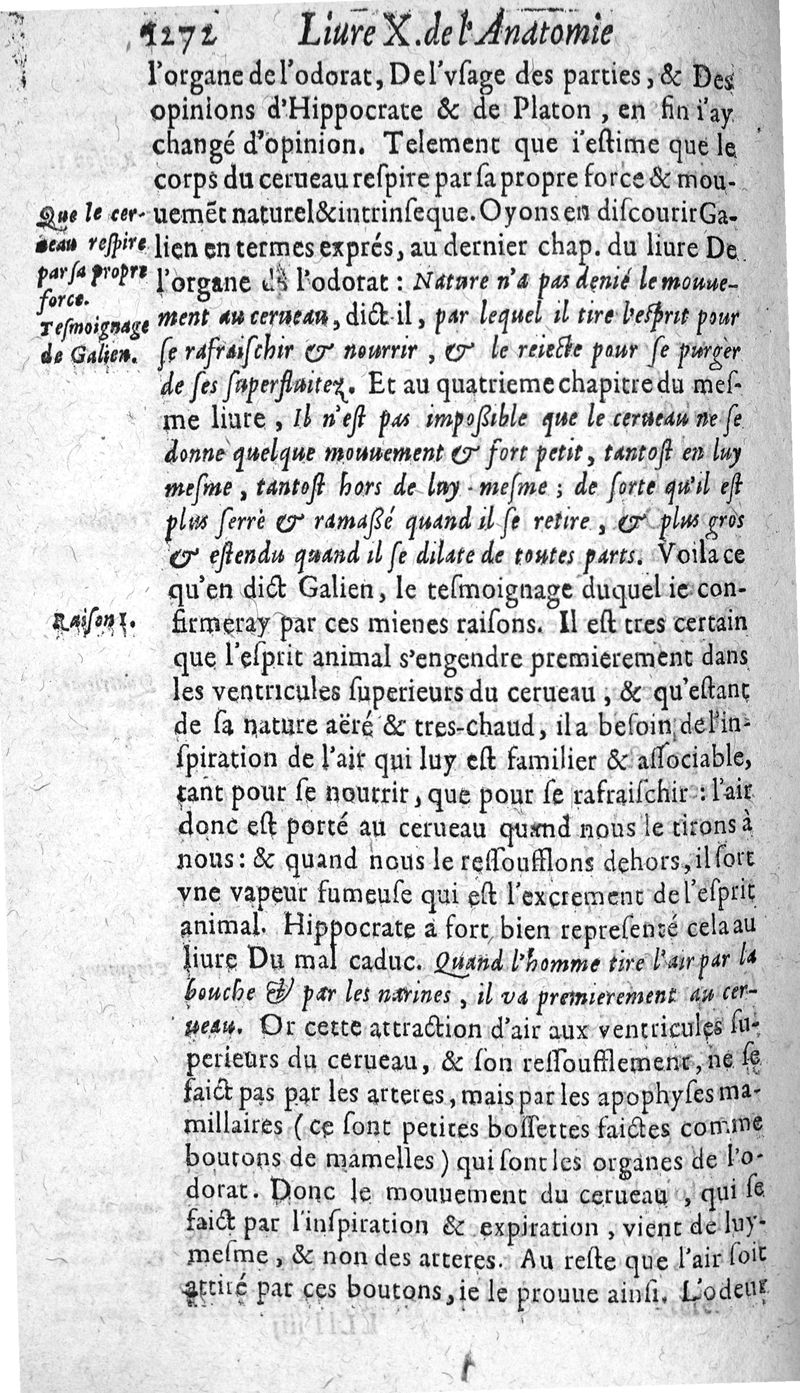 1272 Liure X. de l'Anatomie
l'organe de l'odorat, De l'vsage des parties, & Des
opinions d'Hippocrate & de Platon, en fin i'ay
changé d'opinion. Telement que i'eſtime que le
corps du cerueau reſpire par ſa propre force & mou-
Que le cer-
ueau reſpire
par ſa propre
force.
Teſmoignage
de Galien.
uemẽt naturel & intrinſeque. Oyons en diſcourir Ga-
lien en termes exprés, au dernier chap. du liure De
l'organe de l'odorat : Nature n'a pas denié le mouue-
ment au cerueau, dict il, par lequel il tire l'eſprit pour
ſe rafraiſchir & nourrir, & le reiecte pour ſe purger
de ſes ſuperfluitez. Et au quatrieme chapitre du meſ-
me liure, Il n'eſt pas impoßible que le cerueau ne ſe
donne quelque mouuement & fort petit, tantoſt en luy
meſme, tantoſt hors de luy-meſme ; de ſorte qu'il eſt
plus ſerrè & ramaßé quand il ſe retire, & plus gros
& eſtendu quand il ſe dilate de toutes parts. Voila ce
qu'en dict Galien, le teſmoignage duquel ie con-
Raiſon 1.
firmeray par ces mienes raiſons. Il eſt tres certain
que l'eſprit animal s'engendre premierement dans
les ventricules ſuperieurs du cerueau, & qu'eſtant
de ſa nature aëré & tres-chaud, il a beſoin de l'in-
ſpiration de l'air qui luy eſt familier & aſſociable,
tant pour ſe nourrir, que pour ſe rafraiſchir : l'air
donc eſt porté au cerueau quand nous le tirons à
nous : & quand nous le reſſoufflons dehors, il ſort
vne vapeur fumeuſe qui eſt l'excrement de l'eſprit
animal. Hippocrate a fort bien repreſenté cela au
liure Du mal caduc. Quand l'homme tire l'air par la
bouche & par les narines, il va premierement au cer-
ueau. Or cette attraction d'air aux ventricules ſu-
perieurs du cerueau, & ſon reſſoufflement, ne ſe
faict pas par les arteres, mais par les apophyſes ma-
millaires (ce ſont petites boſſettes faictes comme
boutons de mamelles) qui ſont les organes de l'o-
dorat. Donc le mouuement du cerueau, qui ſe
faict par l'inſpiration & expiration, vient de luy-
meſme, & non des arteres. Au reſte que l'air ſoit
attiré par ces boutons, ie le prouue ainſi. L'odeur